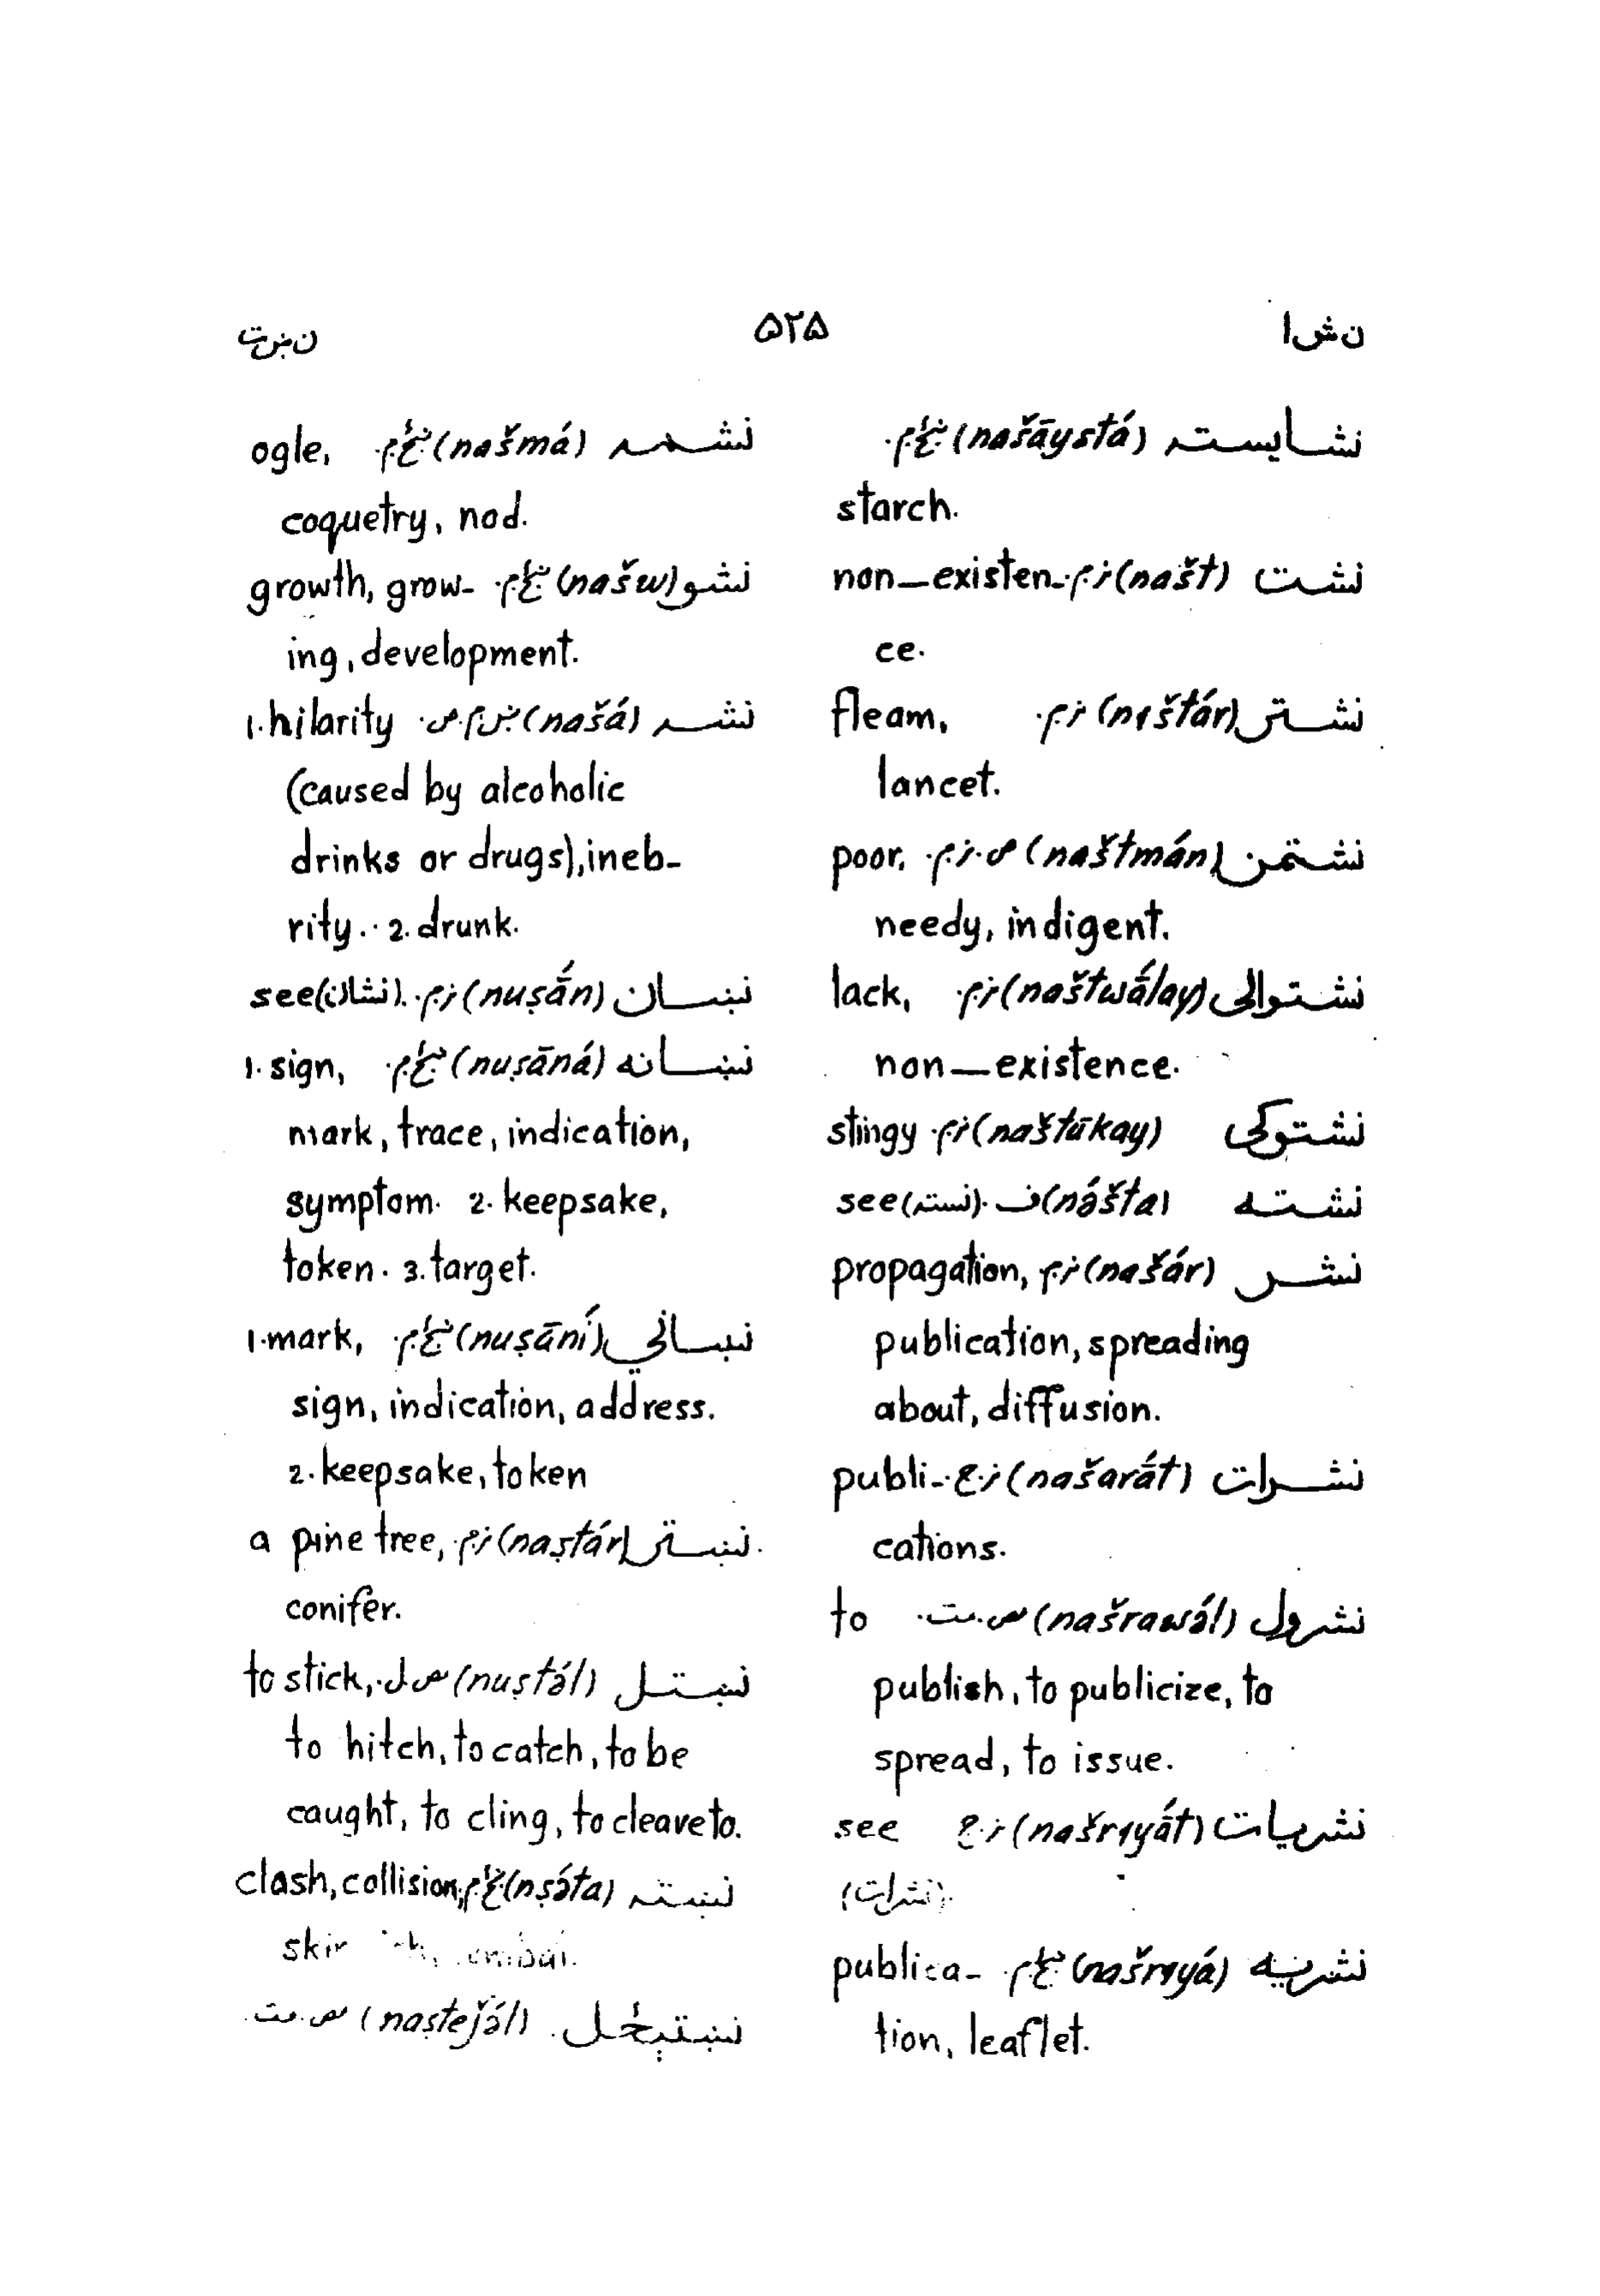 نشا ۵۲۵ نښت
نشایسته (našāystá) ښځ.م.
starch.
نشت (našt) نر.م. non-existen-
ce.
نشتر (nıštár) نر.م. fleam,
lancet.
نشتمن (naštmán) ص.نر.م. poor,
needy, indigent.
نشتوالی (naštwā́lay) نر.م. lack,
non-existence.
نشتوکی (naštūkay) نر.م. stingy
نشته (nə́šta) ف. see (نسته).
نشر (našár) نر.م. propagation,
publication, spreading
about, diffusion.
نشرات (našarā́t) نر.ج. publi-
cations.
نشرول (našrawə́l) ص.مت. to
publish, to publicize, to
spread, to issue.
نشریات (našrıyā́t) نر.ج see
(نشرات).
نشریه (našrıyá) ښځ.م. publica-
tion, leaflet.
نشمه (našmá) ښځ.م. ogle,
coquetry, nod.
نشو (našw) ښځ.م. growth, grow-
ing, development.
نشه (našá) 1. hilarity
(caused by alcoholic
drinks or drugs), ineb-
rity. 2. drunk.
نښان (nuṣā́n) نر.م. see (نشان).
نښانه (nuṣāná) ښځ.م. 1. sign,
mark, trace, indication,
symptom. 2. keepsake,
token. 3. target.
نښاني (nuṣāní) ښځ.م. 1. mark,
sign, indication, address.
2. keepsake, token
نښتر (naṣtár) نر.م. a pine tree,
conifer.
نښتل (nuṣtə́l) ص.ل. to stick,
to hitch, to catch, to be
caught, to cling, to cleave to.
نښته (nṣə́ta) ښځ.م. clash, collision,
نښتېځل (naṣtejə́l) ص.مت.